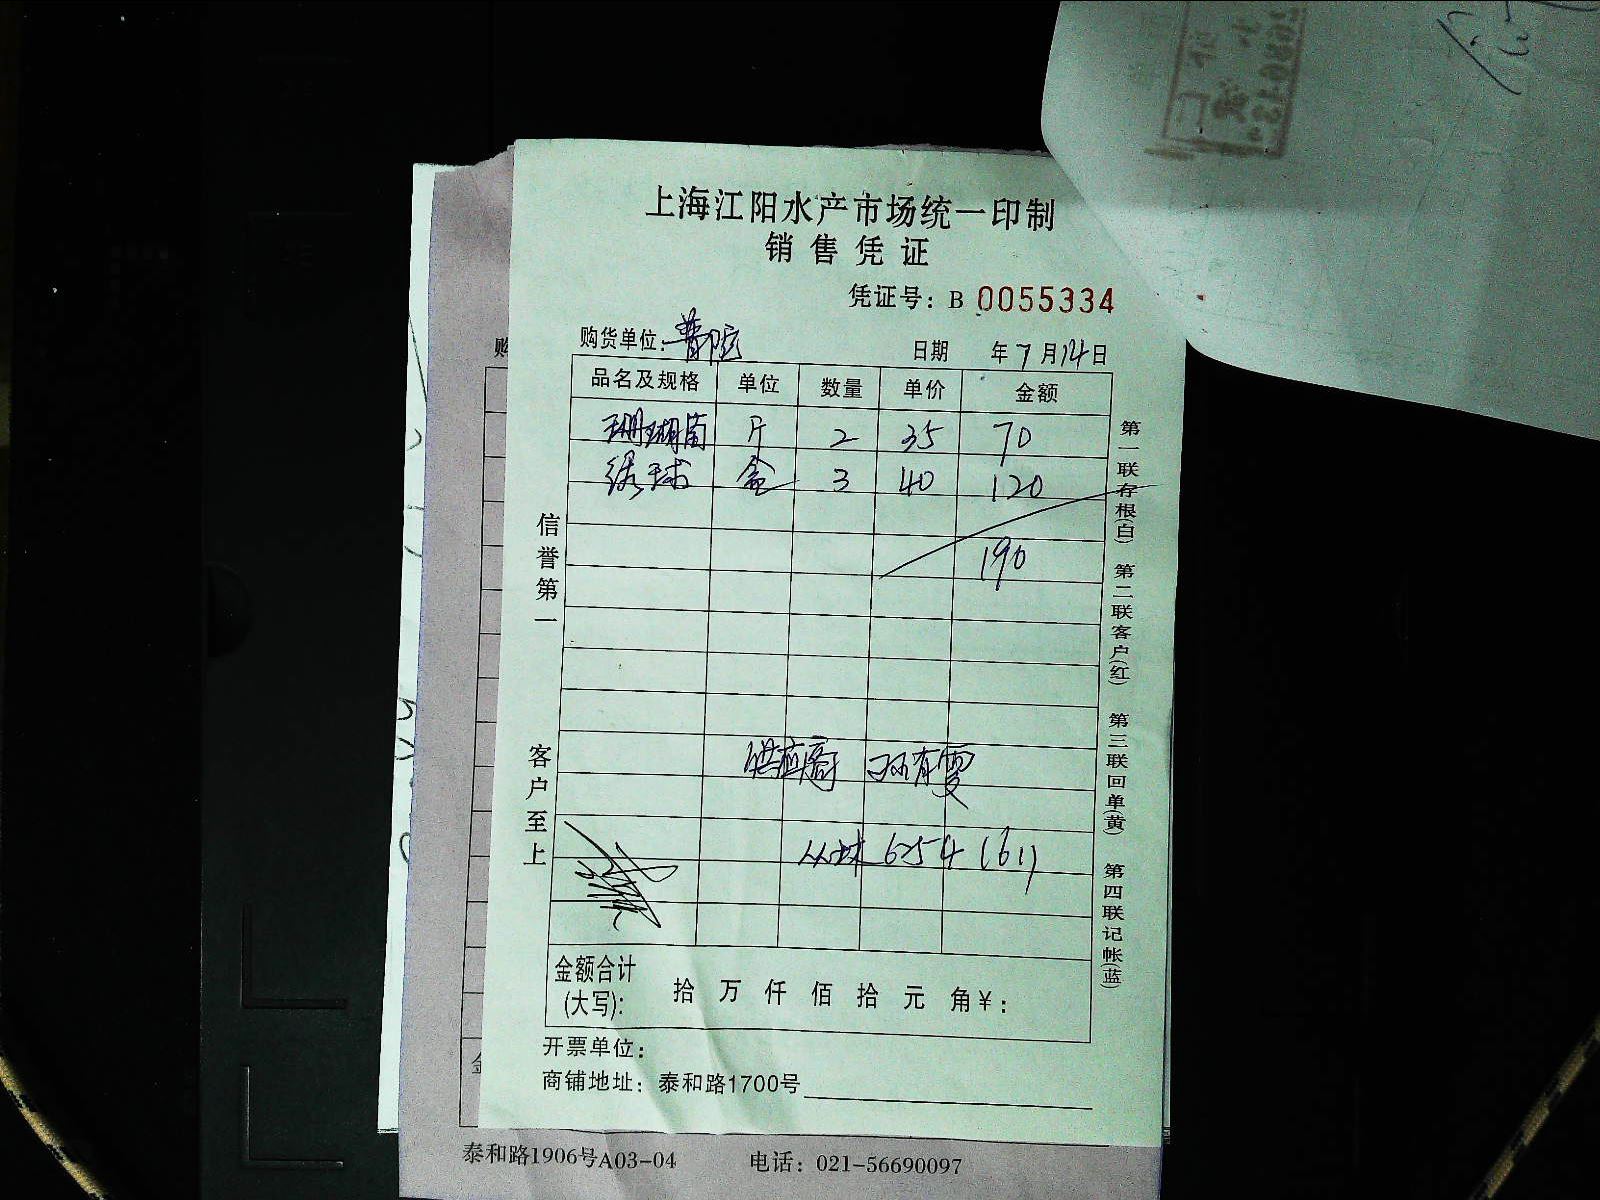 上海江阳水产市场统一印制
销售凭证
凭证号：B 0055334
购货单位：普陀
日期 年7月14日
品名及规格 单位 数量 单价 金额
珊瑚菌 斤 2 35 70
绿球 盒 3 40 120
190
供应商
6254（61）
金额合计
（大写）： 拾 万 仟 佰 拾 元 角 ¥：
开票单位：
商铺地址：泰和路1700号
信誉第一
客户至上
第一联存根（白） 第二联客户（红） 第三联回单（黄） 第四联记帐（蓝）
泰和路1906号A03-04 电话：021-56690097